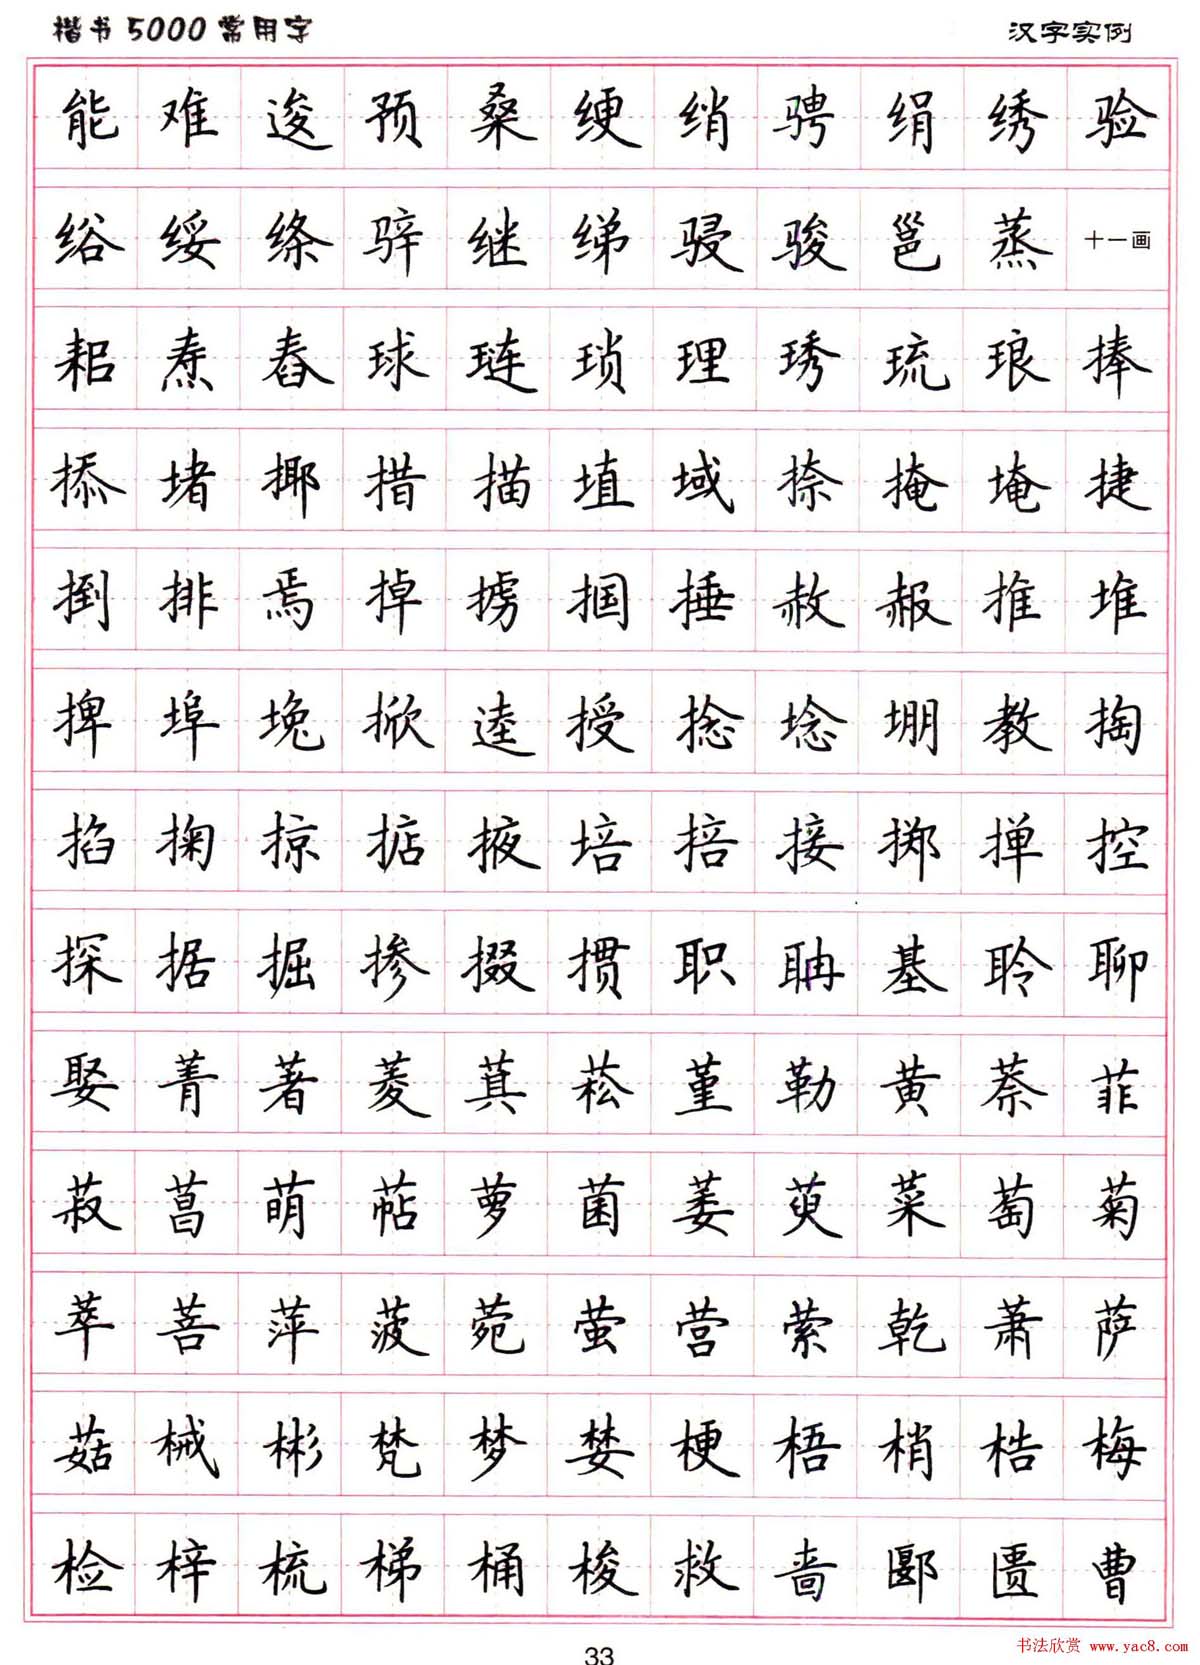 楷书5000常用字 汉字实例
能 难 逡 预 桑 绠 绡 骋 绢 绣 验
绤 绥 绦 骍 继 绨 骎 骏 邕 蒸 十一画
耜 焘 舂 球 琏 琐 理 琇 琉 琅 捧
掭 堵 揶 措 描 埴 域 捺 掩 埯 捷
捯 排 焉 掉 掳 掴 捶 赦 赧 推 堆
捭 埠 堍 掀 逵 授 捻 埝 堋 教 掏
掐 掬 掠 掂 掖 培 掊 接 掷 掸 控
探 据 掘 掺 掇 掼 职 聃 基 聆 聊
娶 菁 著 菱 萁 菘 堇 勒 黄 萘 菲
菽 菖 萌 萜 萝 菌 萎 萸 菜 萄 菊
萃 菩 萍 菠 菀 萤 营 萦 乾 萧 萨
菇 械 彬 梵 梦 婪 梗 梧 梢 梏 梅
检 梓 梳 梯 桶 梭 救 啬 郾 匮 曹
33
书法欣赏 www.yac8.com